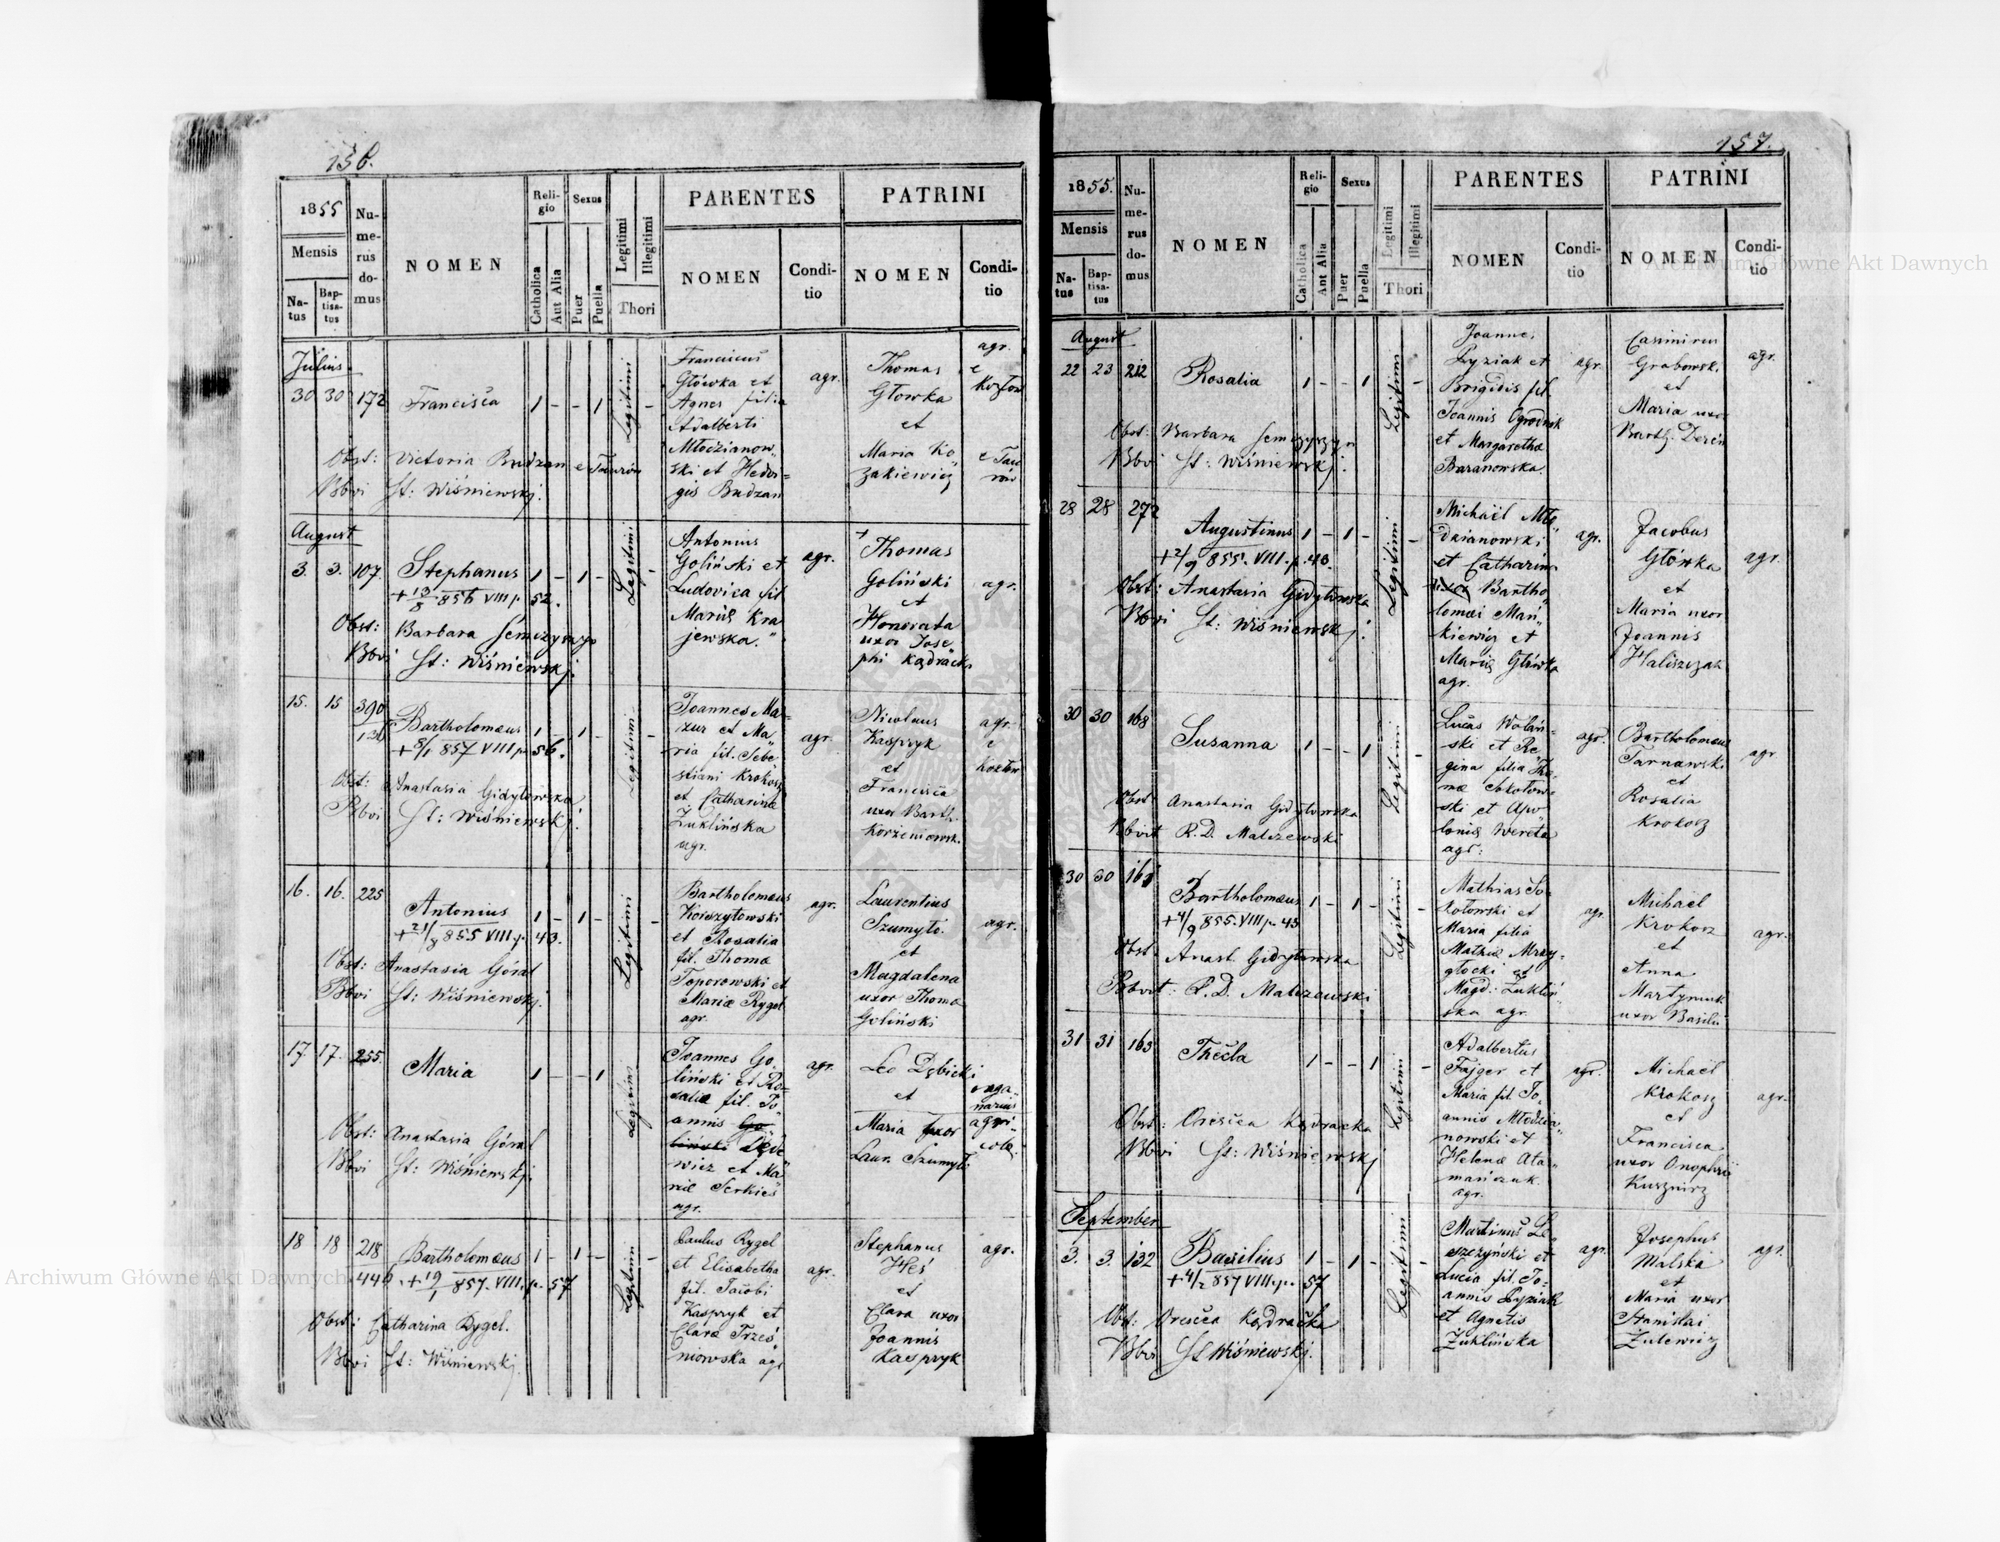 156.
1855
Mensis
Natus
Baptisatus
Numerus domus
NOMEN
Religio
Catholica
Aut Alia
Sexus
Puer
Puella
Legitimi
Illegitimi
Thori
PARENTES
NOMEN
Conditio
PATRINI
NOMEN
Conditio
Julius
30 30 172 Francisca 1 - - 1 Legitimi -
Obst: Victoria Budzan e Taurów
Bbvi St: Wiśniewskj.
Franciscus
Główka et
Agnes filia
Adalberti
Młodzianow„
ski et Hedvi-
gis Budzan
agr.
Thomas
Głowka
et
Maria Ko„
zakiewicz
agr.
e
Kozłow
e Tau
rów
August
3. 3. 107. Stephanus 1 - 1 - Legitimi -
+ 13/8 856 VIII p. 52.
Obst: Barbara Semczyszyn
Bbvi St: Wiśniewskj.
Antonius
Goliński et
Ludovica fil
Mariæ Kra
jewska.
agr.
+ Thomas
Goliński
et
Honorata
uxor Jose
phi Kądracka
agr.
15. 15 390
136
Bartholomæus 1 - 1 - Legitimi -
+ 8/1 857 VIII p. 56.
Obst: Anastasia Gidyłowska
Bbvi St: Wiśniewskj.
Joannes Ma-
zur et Ma„
ria fil. Seba„
stiani Krokosz
et Catharinæ
Żuklińska
agr.
agr.
Nicolaus
Kaspryk
et
Francisca
uxor Barth.
Korzeniowsk.
agr.
e
Kozłow
16. 16. 225 Antonius 1 - 1 - Legitimi -
+ 21/8 855 VIII. p. 43.
Obst: Anastasia Góral
Bbvi St: Wiśniewskj.
Bartholomæus
Koiszytowski
et Rosalia
fil. Thomæ
Toporowski et
Mariæ Rygel
agr.
agr.
Laurentius
Szumyło.
et
Magdalena
uxor Thoma
Goliński
agr.
17. 17. 255. Maria 1 - - 1 Legitimi
Obst: Anastasia Góral
Bbvi St: Wiśniewskj.
Joannes Go„
liński et Ro-
salia fil. Jo„
annis Go„
liński Dęde
wicz et Ma„
riæ Serkies
agr.
agr.
Leo Dębicki
et
Maria uxor
Laur. Szumyło
orga
narius
agri„
cola
18 18 218
446
Bartholomæus 1 - 1 - Legitimi -
+ 19/1 857. VIII. p. 57
Obst: Catharina Rygel.
Bbvi St: Wiśniewskj.
Paulus Rygel
et Elisabetha
fil. Jacobi
Kaspryk et
Claræ Trześ
niowska agr
agr.
Stephanus
Heś
et
Clara uxor
Joannis
Kaspryk
agr.
157.
1855.
Mensis
Natus
Baptisatus
Numerus domus
NOMEN
Religio
Catholica
Aut Alia
Sexus
Puer
Puella
Legitimi
Illegitimi
Thori
PARENTES
NOMEN
Conditio
PATRINI
NOMEN
Conditio
August
22 23 212 Rosalia 1 - - 1 Legitimi -
Obst: Barbara Semczyszyn
Bbvi St: Wiśniewskj.
Joannes
Pyziak et
Brigidis fil.
Joannis Ogrodnik
et Margaretha
Baranowska.
agr.
Casimirus
Grabowski
et
Maria uxor
Barth. Deren
agr.
28 28 272 Augustinus 1 - 1 - Legitimi -
+ 2/9 855. VIII. p. 43.
Obst: Anastasia Gidyłowska
Bbvi St: Wiśniewskj.
Michaël Mło„
dzianowski
et Catharina
Bartho„
lomæi Mań„
kiewicz et
Mariæ Główka
agr.
agr.
Jacobus
Główka
et
Maria uxor
Joannis
Haliszczak
agr.
30 30 168 Susanna 1 - - 1 Legitimi -
Obst: Anastasia Gidyłowska
Bbvit R. D. Malczewski
Lucas Wolań-
ski et Re
gina filia Tho„
mæ Sokołow-
ski et Apo„
loniæ Wereta
agr:
agr.
Bartholomæus
Tarnawski
et
Rosalia
Krokosz
agr
30 30 Bartholomæus 1 - 1 - Legitimi -
+ 4/9 855. VIII p. 43
Obst. Anast. Gidyłowska
Bbvit: R. D. Malczewski
Mathias So„
kołowski et
Maria filia
Mathiæ Mrzy-
głocki et
Magd: Żukliń„
ska agr.
agr.
Michaël
Krokosz
et
Anna
Martyniuk
uxor Basilii
agr.
31 31 163 Thecla 1 - - 1 Legitimi -
Obst: Oresica Kądracka
Bbvi St: Wiśniewskj
Adalbertus
Fajger et
Maria fil. Jo„
annis Młodzia„
nowski et
Helenæ Ata„
mańczuk.
agr.
agr.
Michaël
Krokosz
et
Francisca
uxor Onophrii
Kusznirz
agr.
September
3. 3. 132 Basilius 1 - 1 - Legitimi -
+ 4/2 857 VIII. p. 57
Obst: Oresica Kądracka
Bbvi St Wiśniewskj.
Martinus Le„
szczyński et
Lucia fil. Jo„
annis Pyziak
et Agnetis
Żuklińska
agr.
Josephus
Malski
et
Maria uxor
Stanislai
Żulewicz
agr.
Archiwum Główne Akt Dawnych
Archiwum Główne Akt Dawnych